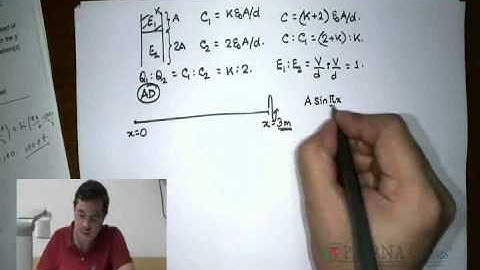 K
E₁
A
C₁ = Kε₀A/d.
C = (K+2) ε₀A/d.
E₂
2A
C₂ = 2ε₀A/d.
C : C₁ = (2+K) : K.
Q₁ : Q₂ = C₁ : C₂ = K : 2.
E₁ : E₂ = V/d : V/d = 1.
AD
A sin πx
x=0
x=3m